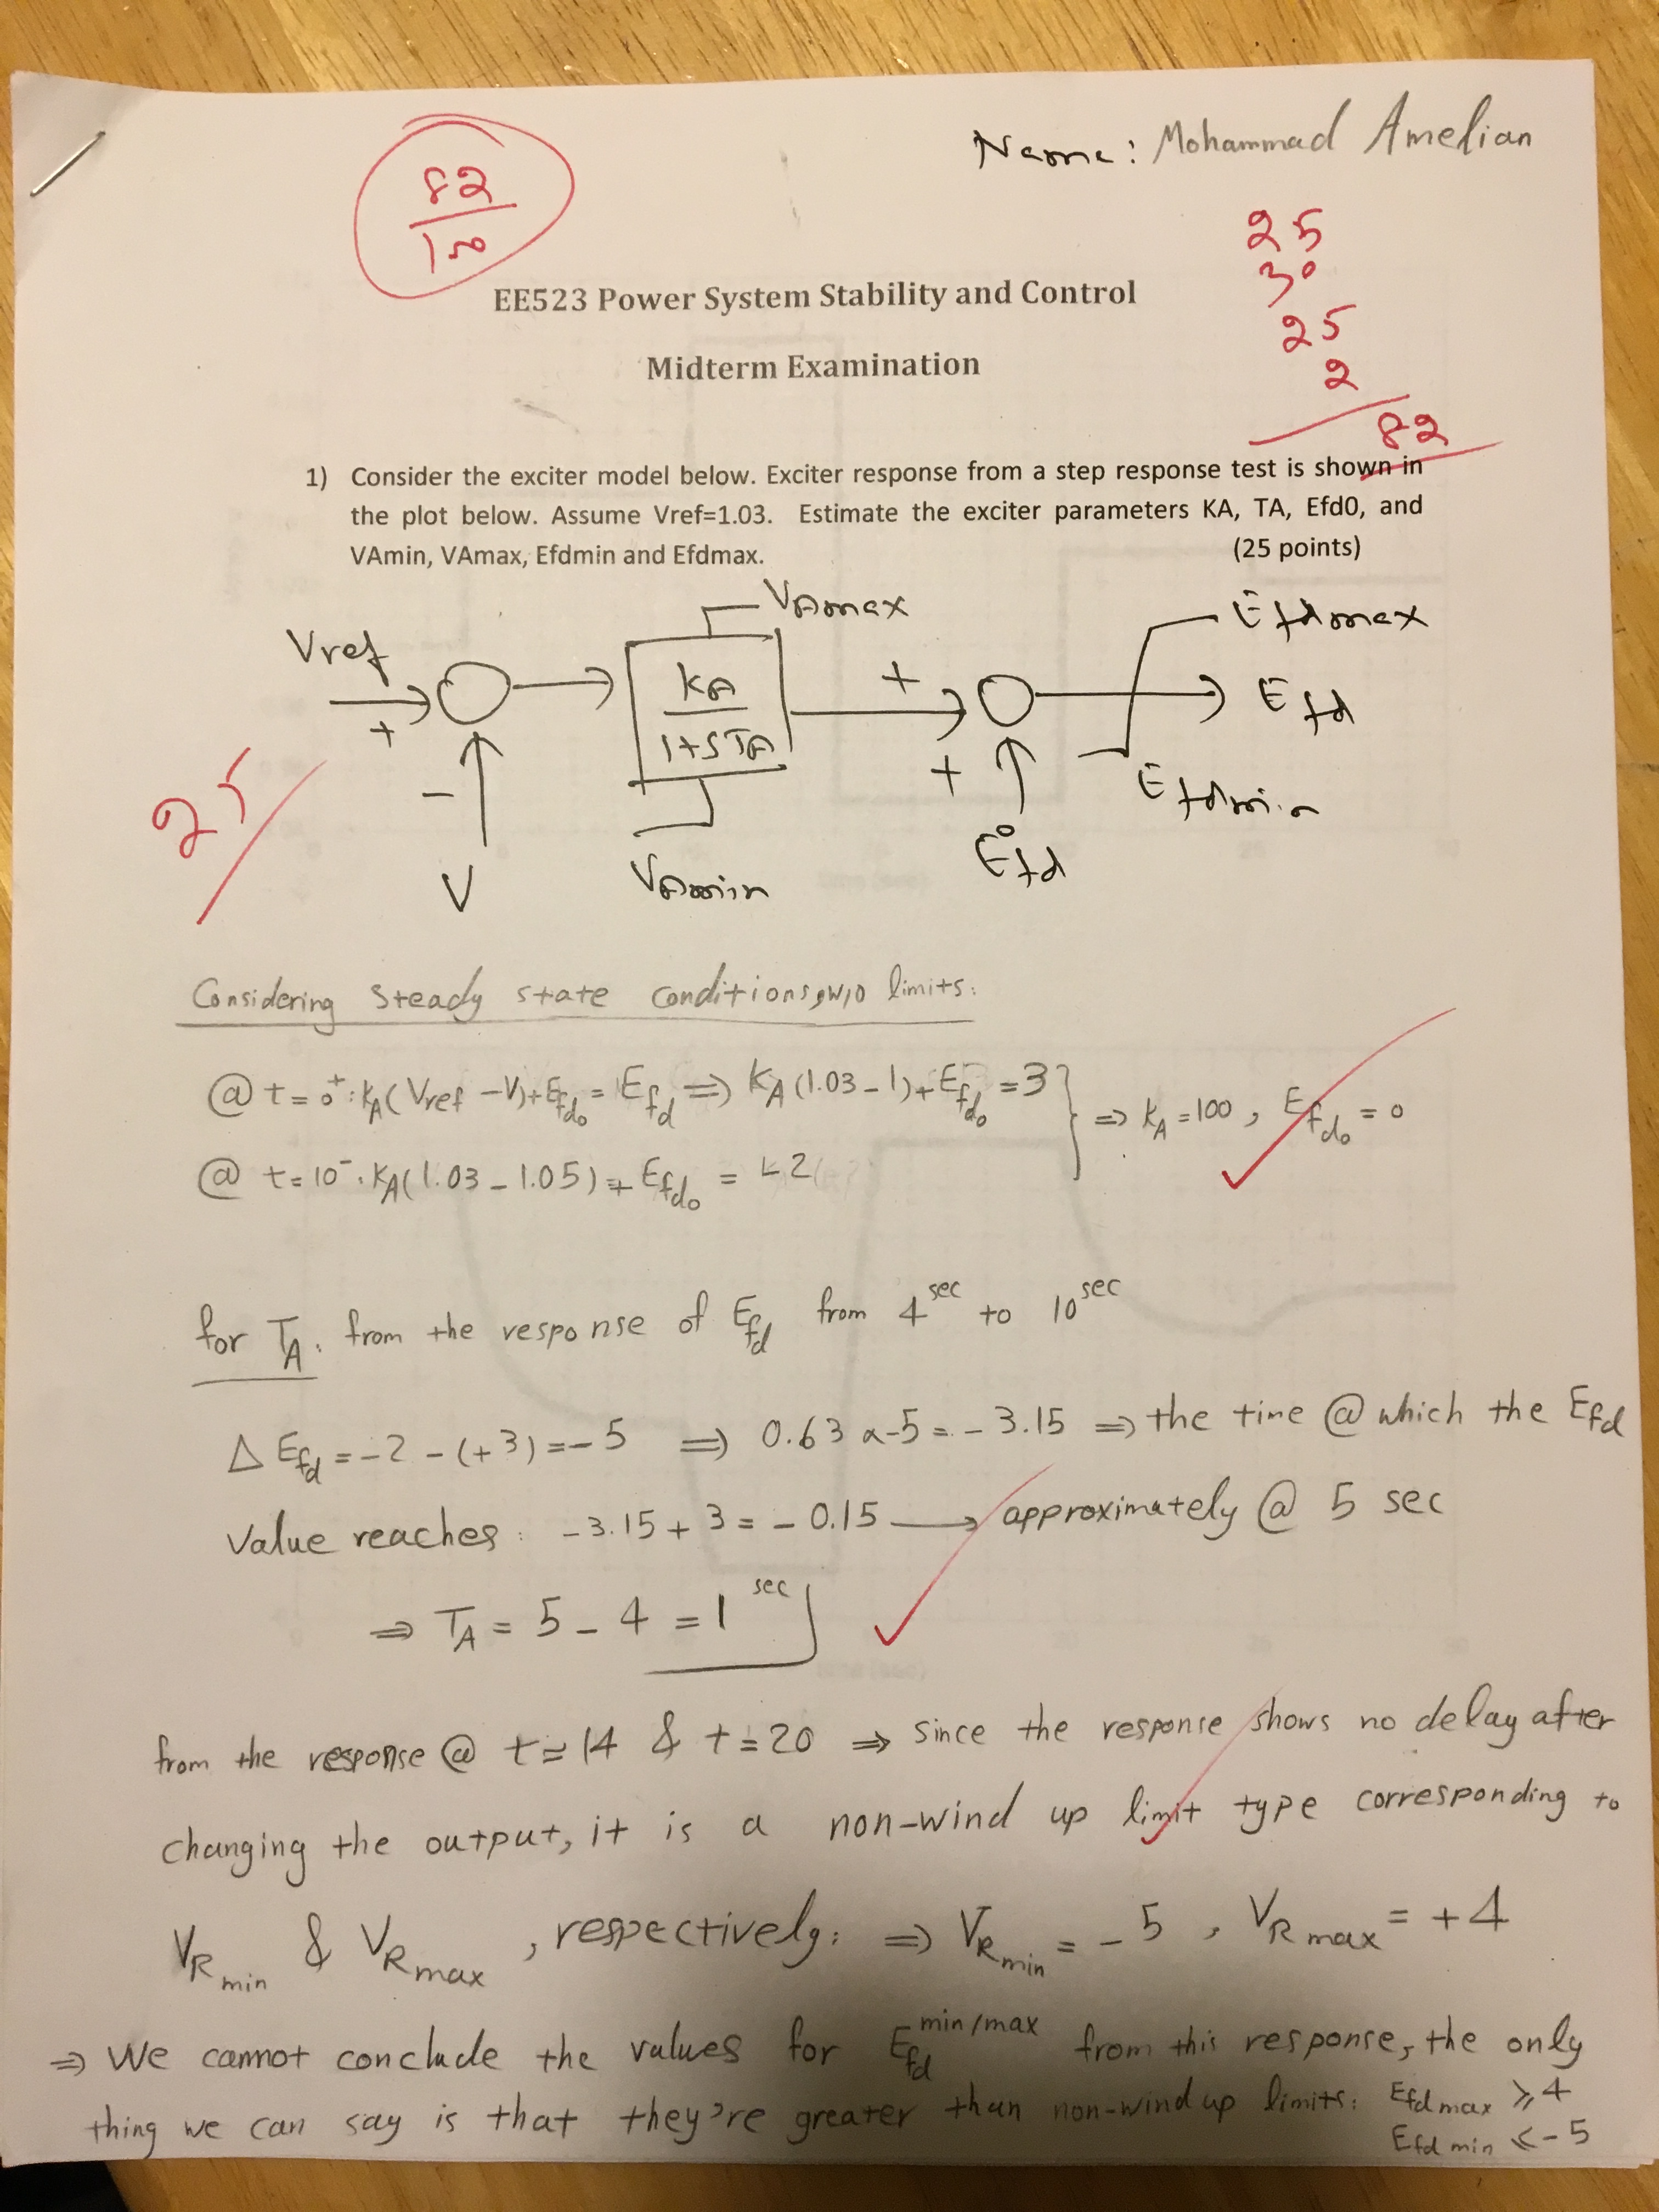 Name: Mohammad Amelian
82
100
25
30
25
2
82
EE523 Power System Stability and Control
Midterm Examination
1) Consider the exciter model below. Exciter response from a step response test is shown in
the plot below. Assume Vref=1.03. Estimate the exciter parameters KA, TA, Efd0, and
VAmin, VAmax, Efdmin and Efdmax. (25 points)
VAmax
Efdmax
Vref
KA
1+STA
+
+
Efd
-
+
Efdmin
25
V
VAmin
E°fd
Considering steady state conditions, w/o limits:
@ t=0⁺: KA(Vref -V)+Efd0 = Efd ⇒ KA(1.03-1)+Efd0 =3
⇒ KA=100, Efd0 = 0
@ t=10⁻: KA(1.03-1.05)+Efd0 = -2
for TA: from the response of Efd from 4 sec to 10 sec
Δ Efd = -2 - (+3) = -5 ⇒ 0.63 x -5 = -3.15 ⇒ the time @ which the Efd
value reaches: -3.15 + 3 = -0.15 → approximately @ 5 sec
⇒ TA = 5 - 4 = 1 sec
from the response @ t=14 & t=20 ⇒ since the response shows no delay after
changing the output, it is a non-wind up limit type corresponding to
VRmin & VRmax, respectively: ⇒ VRmin = -5, VRmax = +4
⇒ We cannot conclude the values for Efd min/max from this response, the only
thing we can say is that they're greater than non-wind up limits: Efdmax ⩾ 4
Efdmin ⩽ -5